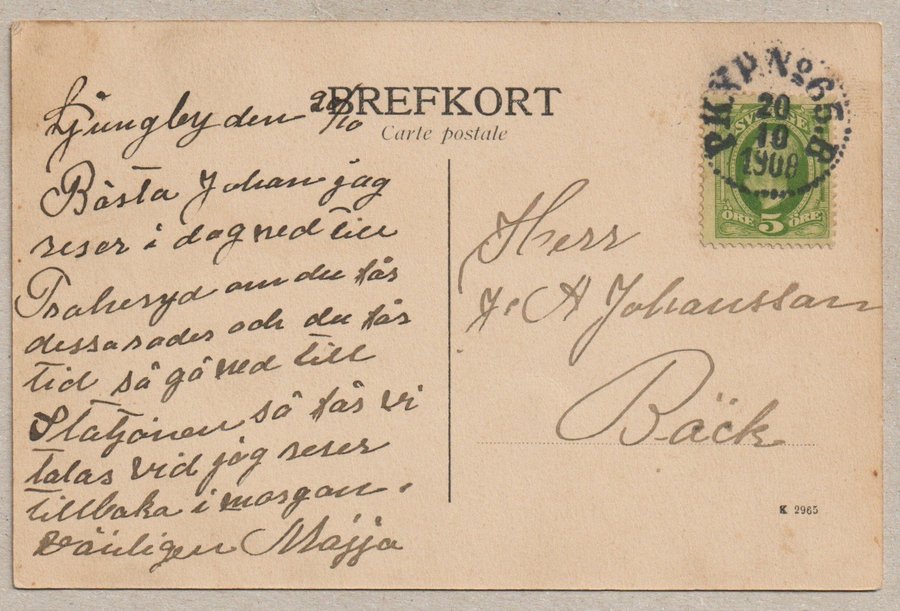 BREFKORT
Carte postale
Ljungby den 20/10
Bästa Johan jag
reser i dag ned till
Traheryd om du får
dessa rader och du får
tid så gå ned till
Statjonen så får vi
talas vid jag reser
tillbaka i morgon.
Vänligen Majja
PKXP No 65.B
20
10
1908
SVERIGE
ÖRE 5 ÖRE
Herr
J. A Johansson
Bäck
K 2965